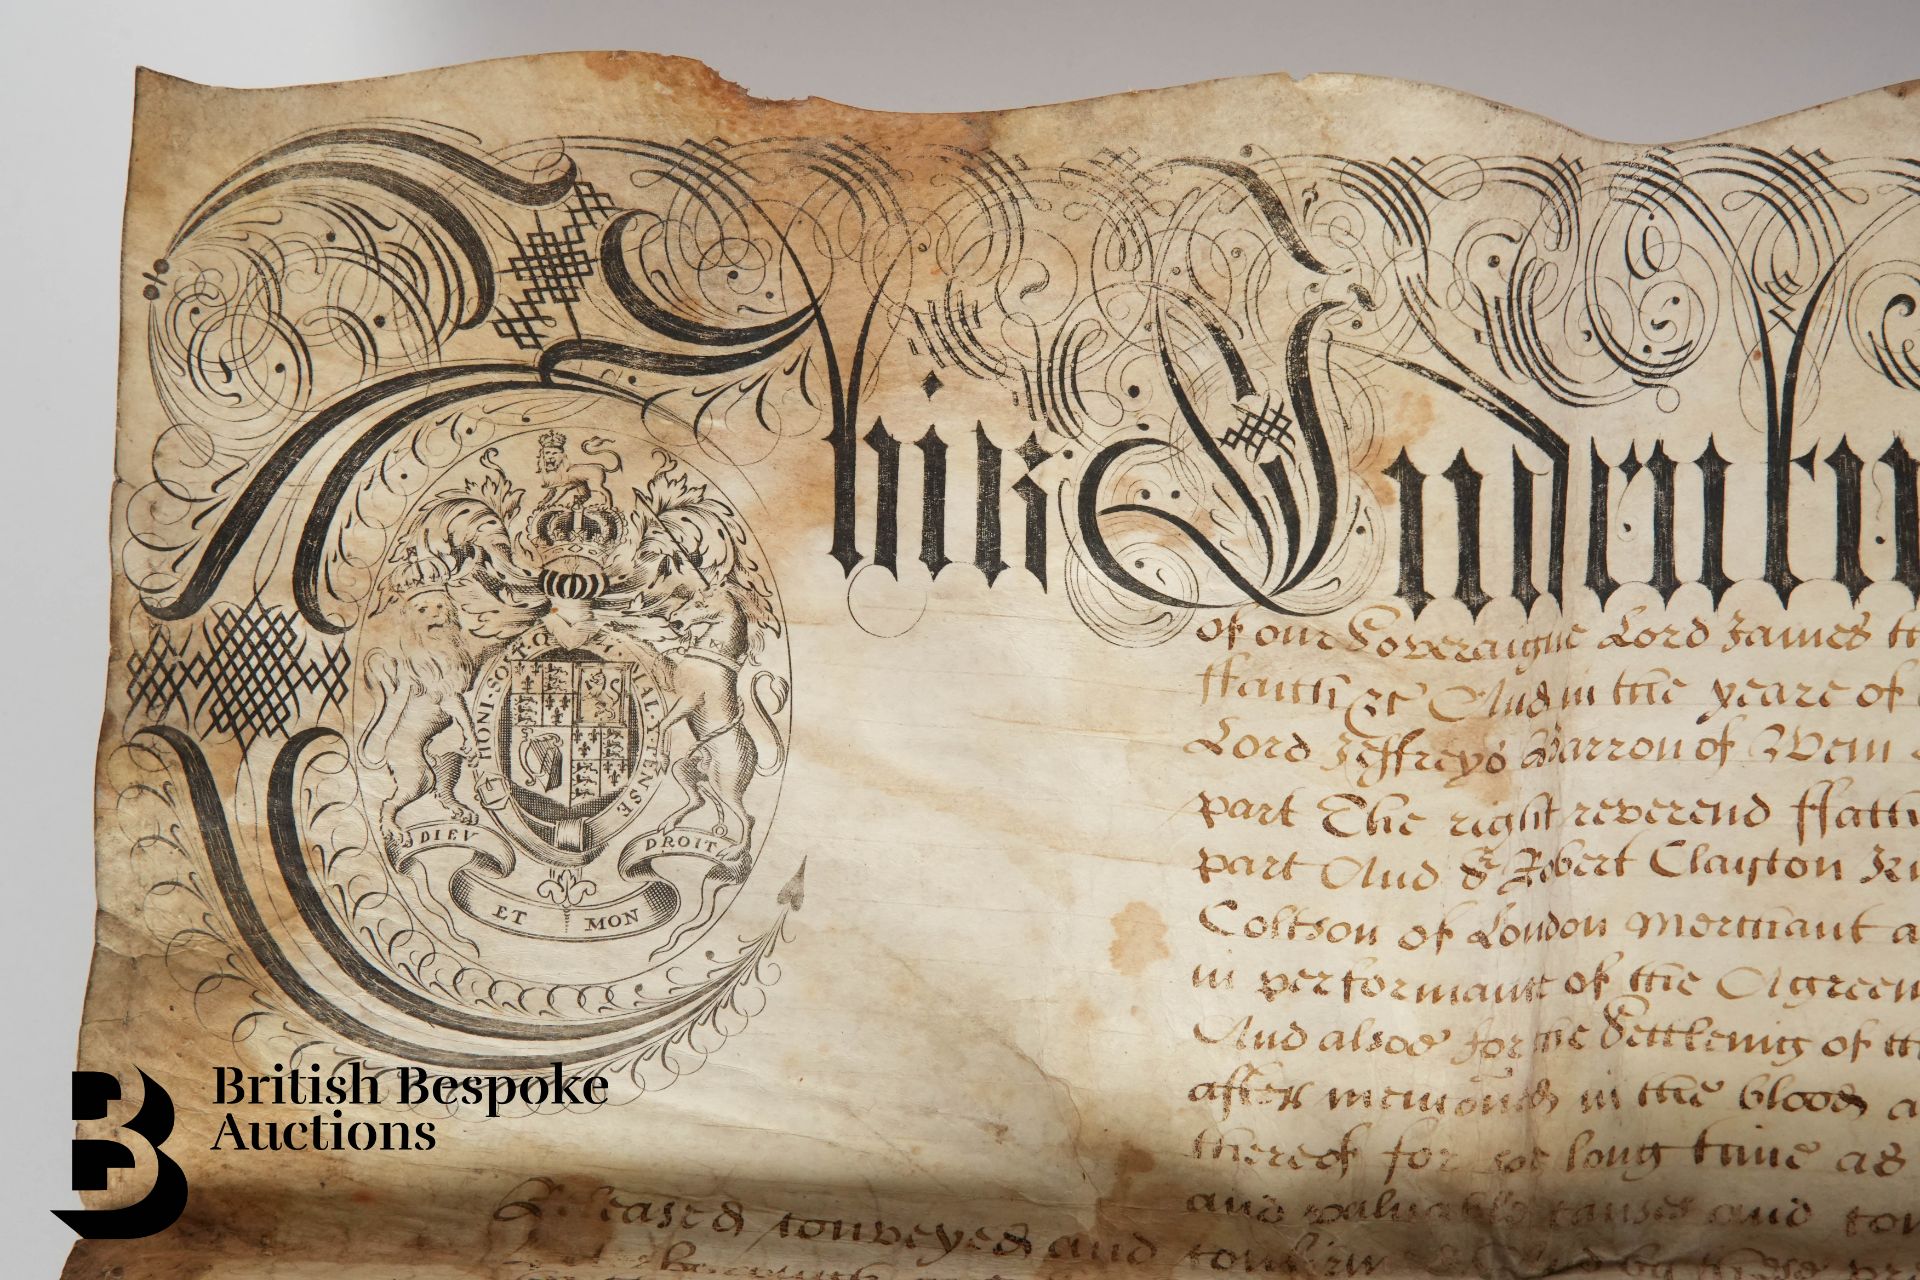 This Indentu
of our Soveraigne Lord James
ffaith &c And in the yeare of
Lord Jeffreys Barron of Wem
part The right reverend ffath
part And Sr Robert Clayton
Coltson of London Merchant a
in performant of the Agreem
And alsoe for the Settleing of
after menconed in the blood a
thereof for soe long time as
and valuable causes and con
Released conveyed and
HONI·SOIT·Q MAL·Y·PENSE
DIEV ET MON DROIT
British Bespoke
Auctions